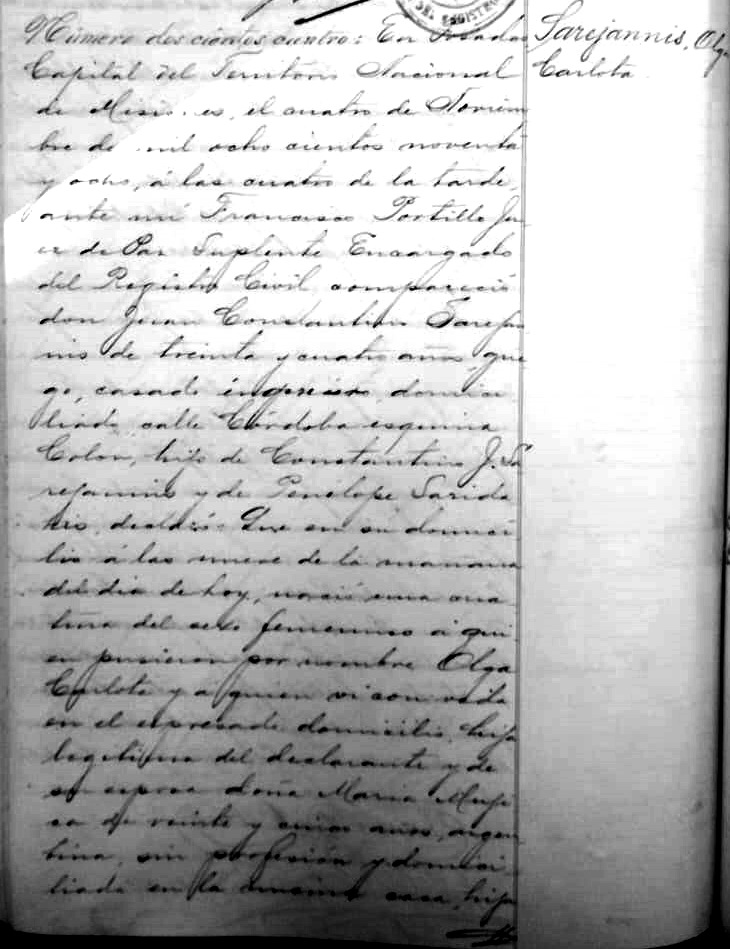 Número doscientos cuatro: En Posadas
Capital del Territorio Nacional
de Misiones, el cuatro de Noviem
bre de mil ocho cientos noventa
y ocho, á las cuatro de la tarde,
ante mi Francisco Portillo Ju
ez de Paz Suplente Encargado
del Registro Civil, compareció
don Juan Constantino Sarejan
nis de treinta y cuatro años, grie
go, casado, domici
liado calle Córdoba esquina
Colon, hijo de Constantino J. Sa
rejannis y de Penélope Sarida
kis, declaró: Que en su domici
lio á las nueve de la mañana
del dia de hoy, nació una cria
tura del sexo femenino á qui
en pusieron por nombre Olga
Carlota y á quien vi con vida
en el expresado domicilio, hija
legitima del declarante y de
su esposa doña Maria
de veinte y cinco años, argen
tina, sin profesión y domici
liada en la misma casa, hija
Sarejannis, Olga
Carlota